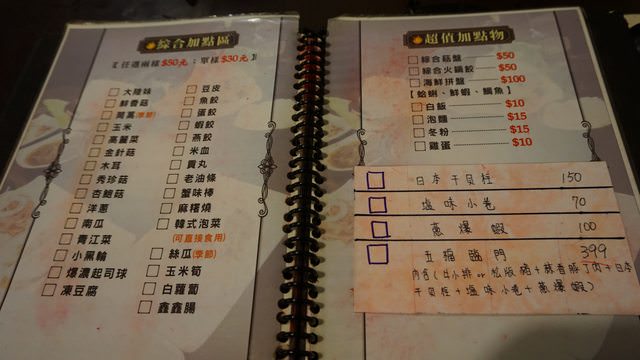 綜合加點區
【任選兩樣$50元；單樣$30元】
大陸妹
鮮香菇
茼蒿(季節)
玉米
高麗菜
金針菇
木耳
秀珍菇
杏鮑菇
洋蔥
南瓜
青江菜
小黑輪
爆漿起司球
凍豆腐
豆皮
魚餃
蛋餃
蝦餃
燕餃
米血
貢丸
老油條
蟹味棒
麻糬燒
韓式泡菜
(可直接食用)
絲瓜(季節)
玉米筍
白蘿蔔
鑫鑫腸
超值加點物
綜合菇盤 $50
綜合火鍋餃 $50
海鮮拼盤 $100
【蛤蜊、鮮蝦、鯛魚】
白飯 $10
泡麵 $15
冬粉 $15
雞蛋 $10
日本干貝柱 150
塩味小卷 70
蔥爆蝦 100
五福臨門 399
內含(牛小排or松阪豬+辣香豚丁肉+日本
干貝柱+塩味小卷+蔥爆蝦)